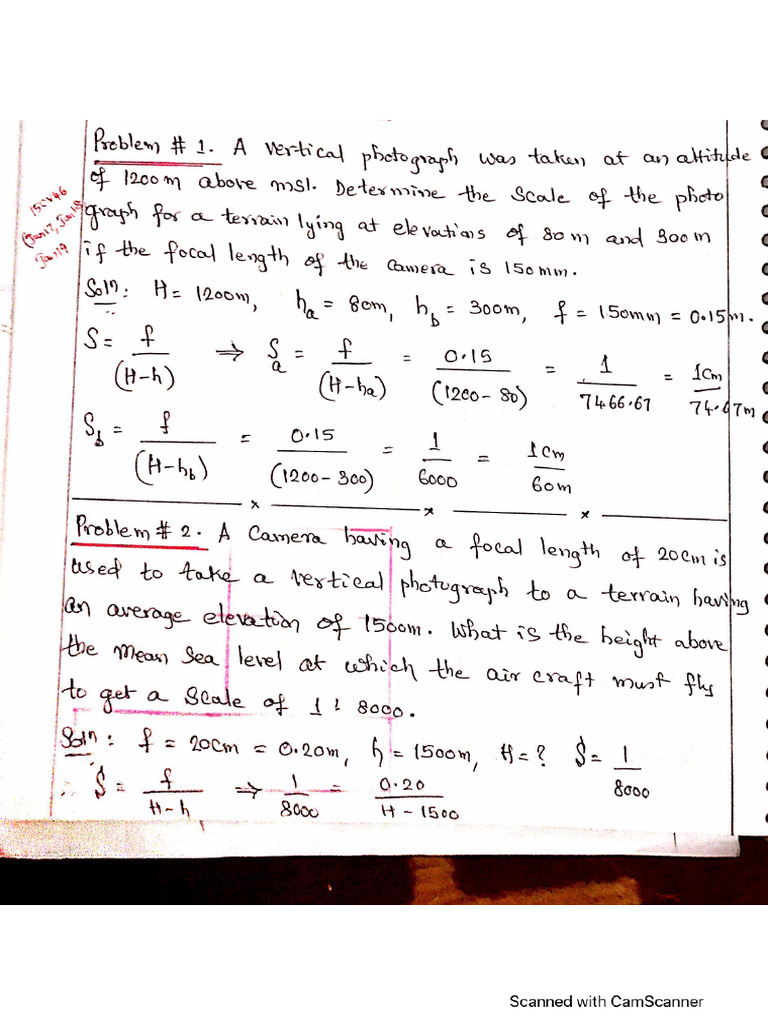 Problem # 1. A vertical photograph was taken at an altitude
of 1200m above msl. Determine the scale of the photo
15CV46
(Jan17, Jan18
Jan19
graph for a terrain lying at elevations of 80m and 300m
if the focal length of the camera is 150mm.
Soln: H = 1200m, ha = 80m, hb = 300m, f = 150mm = 0.15m.
S = f/(H-h) ⇒ Sa = f/(H-ha) = 0.15/(1200-80) = 1/7466.67 = 1cm/74.67m
Sb = f/(H-hb) = 0.15/(1200-300) = 1/6000 = 1cm/60m
x x x
Problem # 2. A Camera having a focal length of 20cm is
used to take a vertical photograph to a terrain having
an average elevation of 1500m. What is the height above
the mean sea level at which the air craft must fly
to get a scale of 1:8000.
Soln: f = 20cm = 0.20m, h = 1500m, H = ? S = 1/8000
∴ S = f/H-h ⇒ 1/8000 = 0.20/H-1500
Scanned with CamScanner